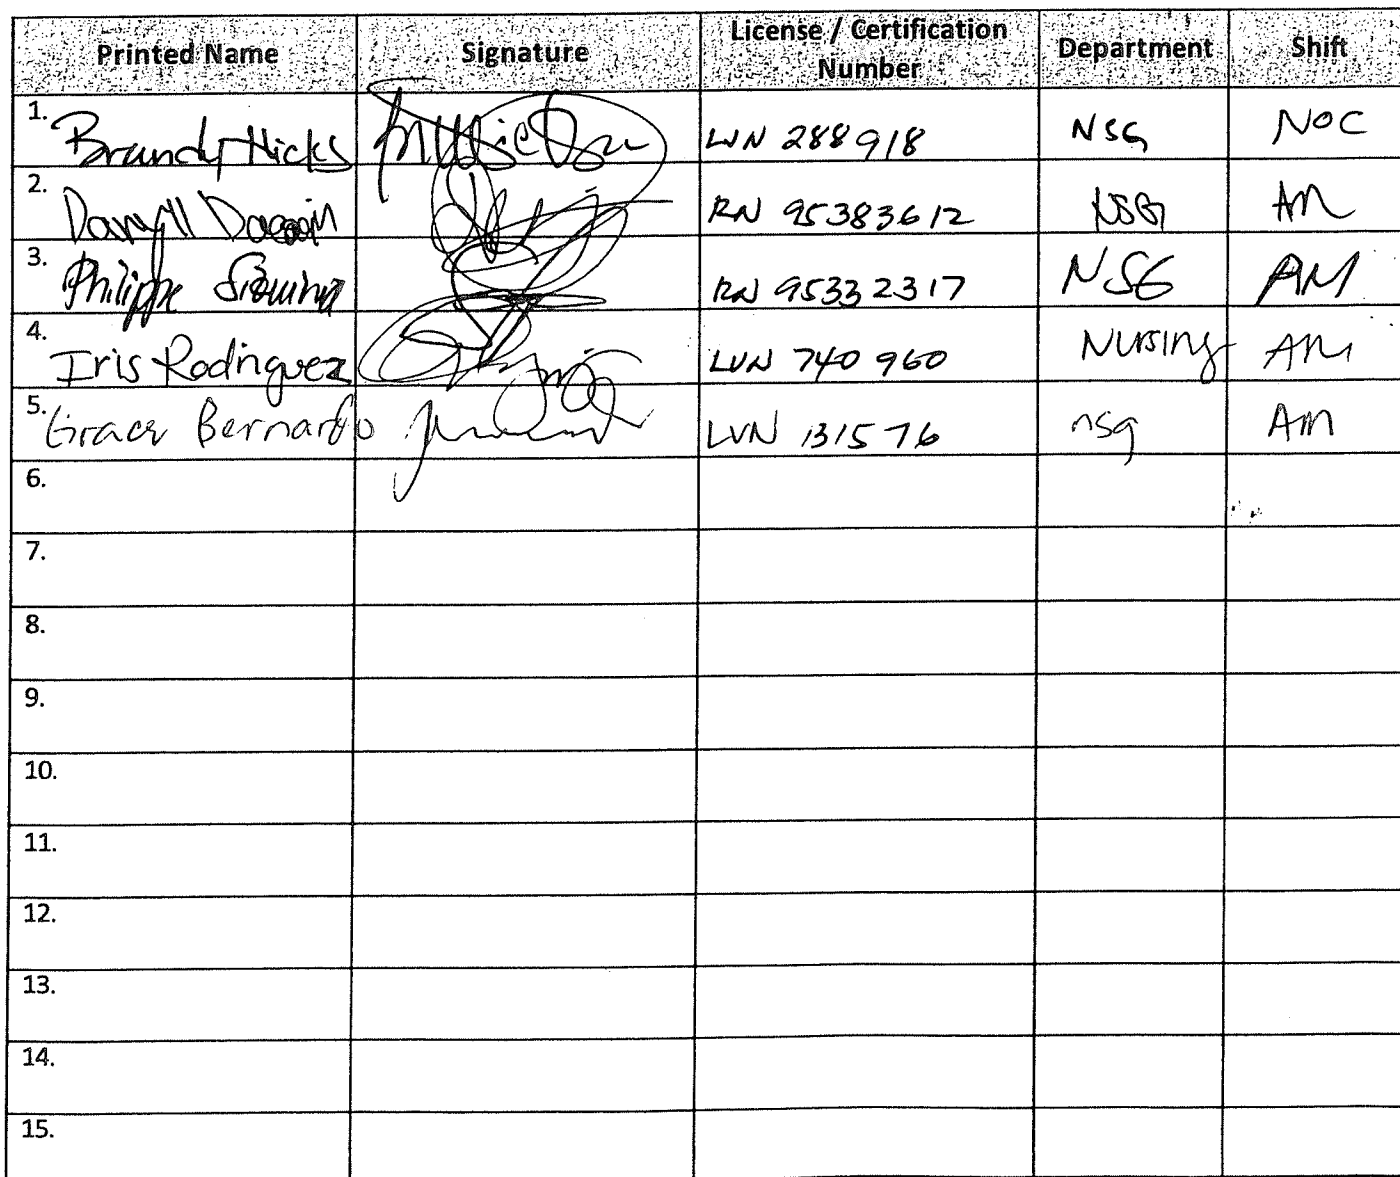 Printed Name Signature License / Certification Number Department Shift
1. Brandy Hicks LVN 288918 NSG NOC
2. Daryll RN 95383612 NSG AM
3. Philippe RN 95332317 NSG AM
4. Iris Rodriguez LVN 740960 Nursing AM
5. Grace Bernardo LVN 131576 nsg AM
6.
7.
8.
9.
10.
11.
12.
13.
14.
15.